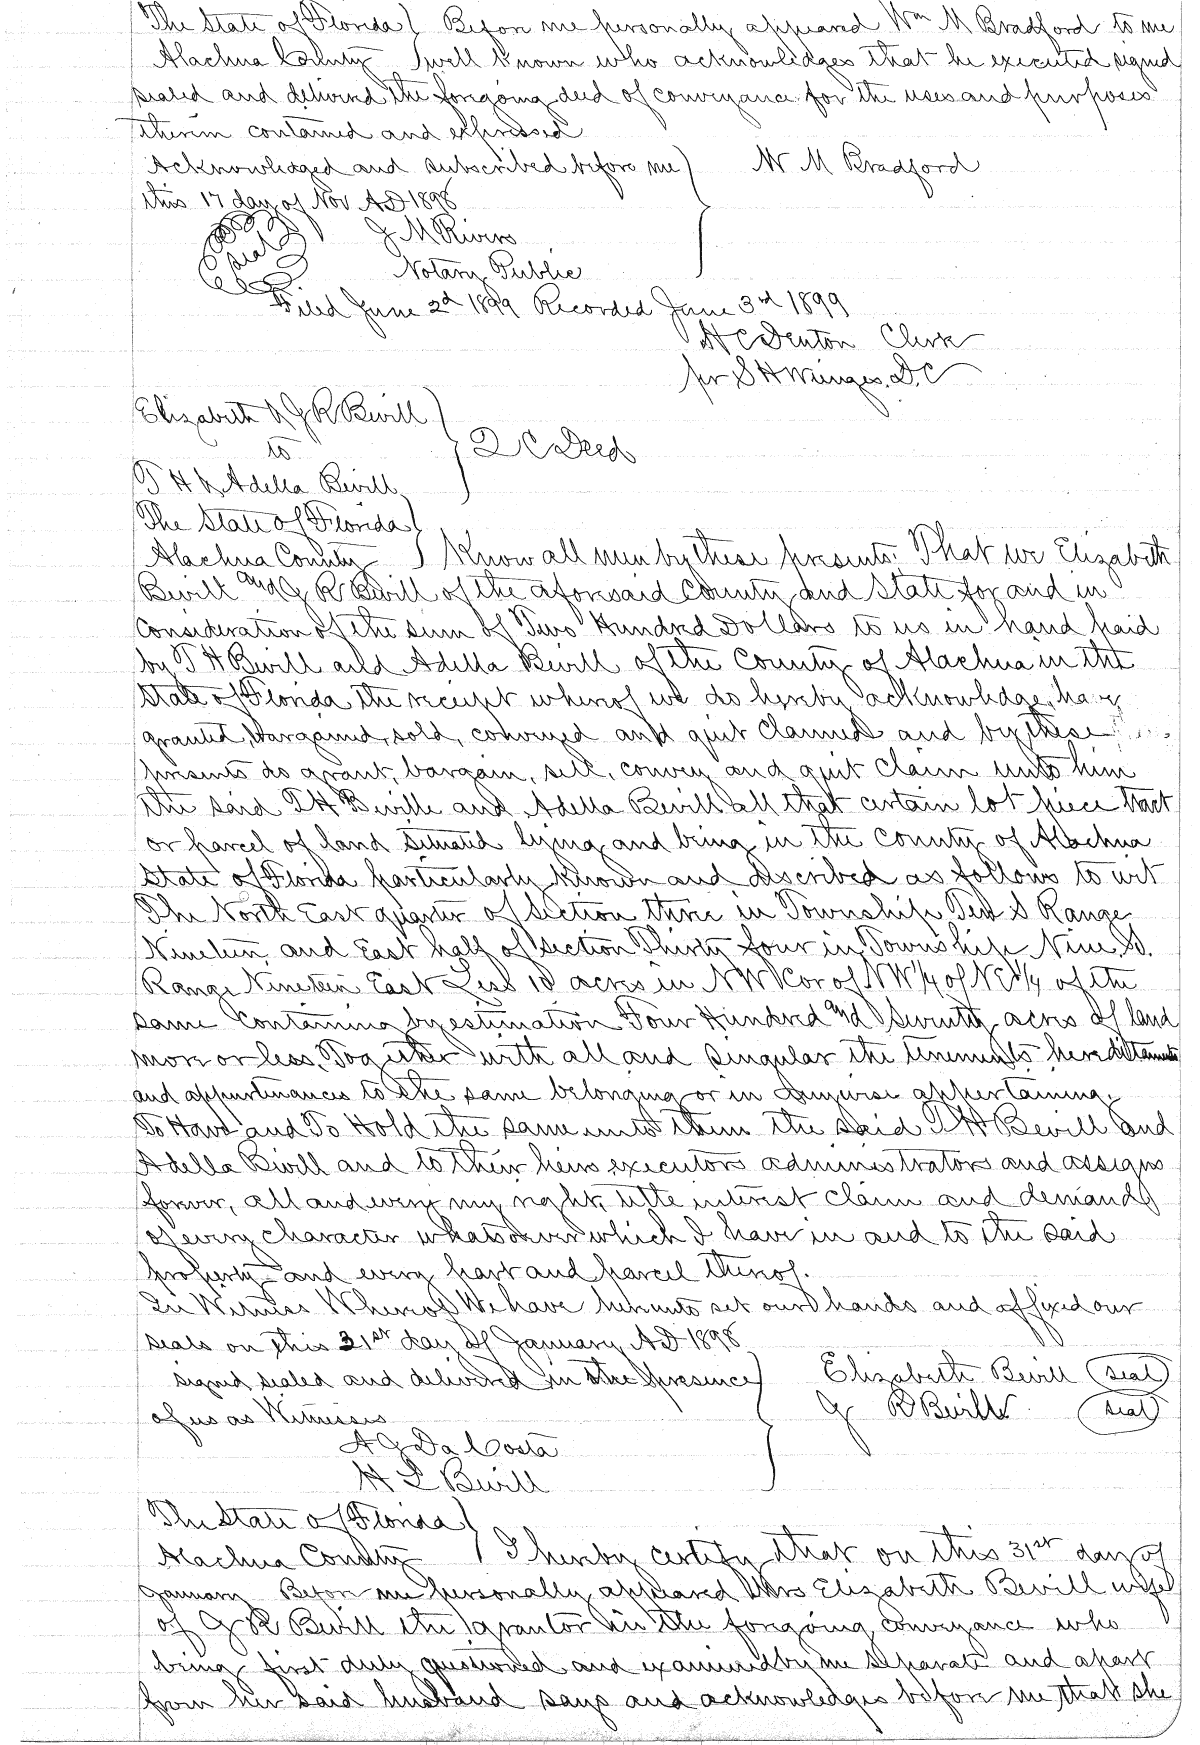 The State of Florida } Before me personally appeared Wm M Bradford to me
Alachua County } well known who acknowledges that he executed signed
sealed and delivered the foregoing deed of conveyance for the uses and purposes
therein contained and expressed
Acknowledged and subscribed before me } W M Bradford
this 17 day of Nov AD 1898
seal J M Rivers
Notary Public
Filed June 2d 1899 Recorded June 3rd 1899
H C Denton Clerk
per S H Wienges D.C
Elizabeth & J R Bevill
to } Q C Deed
T H & Adella Bevill
The State of Florida }
Alachua County } Know all men by these presents: That we Elizabeth
Bevill and J R Bevill of the aforesaid County and State for and in
consideration of the sum of Two Hundred Dollars to us in hand paid
by T H Bevill and Adella Bevill of the County of Alachua in the
State of Florida the receipt whereof we do hereby acknowledge, have
granted, bargained, sold, conveyed and quit claimed and by these
presents do grant, bargain, sell, convey and quit claim unto him
the said T H Beville and Adella Bevill all that certain lot piece tract
or parcel of land situated lying and being in the County of Alachua
State of Florida particularly known and described as follows to wit
The North East quarter of section three in Township Ten S Range
Nineteen, and East half of section Thirty four in Township Nine S.
Range Nineteen East Less 10 acres in NW Cor of NW 1/4 of NE 1/4 of the
same containing by estimation Four Hundred and Seventy acres of land
more or less. Together with all and singular the tenements hereditaments
and appurtenances to the same belonging or in anywise appertaining.
To Have and To Hold the same unto them the said T H Bevill and
Adella Bevill and to their heirs executors administrators and assigns
forever, all and every my right, title interest claim and demands
of every character whatsoever which I have in and to the said
property and every part and parcel thereof.
In Witness Whereof We have hereunto set our hands and affixed our
seals on this 31st day of January AD 1898
signed sealed and delivered in the presence } Elizabeth Bevill (seal)
of us as Witnesses J R Beville (seal)
A G Da Costa
H L Bevill
The State of Florida }
Alachua County } I hereby certify that on this 31st day of
January Before me personally appeared Mrs Elizabeth Bevill wife
of J R Bevill the grantor in the foregoing conveyance who
being first duly questioned and examined by me separate and apart
from her said husband says and acknowledges before me, that she